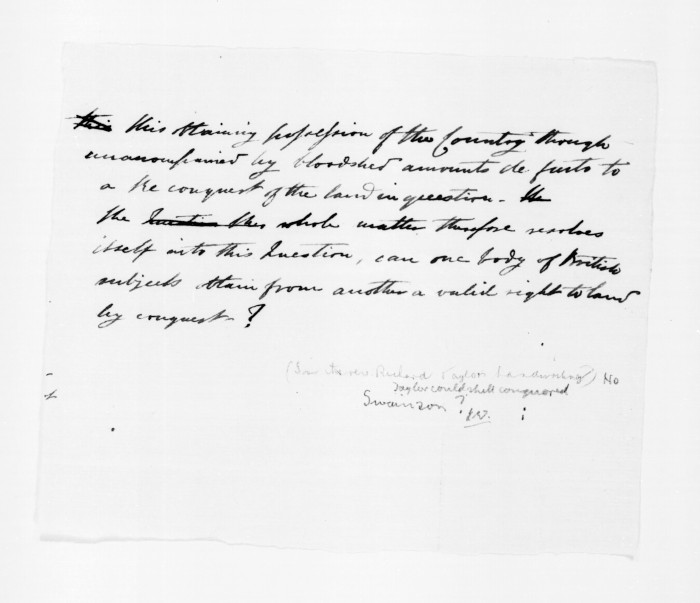 this this obtaining possession of the Country though
unaccompanied by bloodshed amounts de facto to
a Re conquest of the land in question - the
the Question this whole matter therefore resolves
itself into this Question, can one body of British
subjects obtain from another a valid right to land
by conquest - ?
(In the rev Richard Taylor handwriting?) No
Taylor could spell conquered
Swainson ?